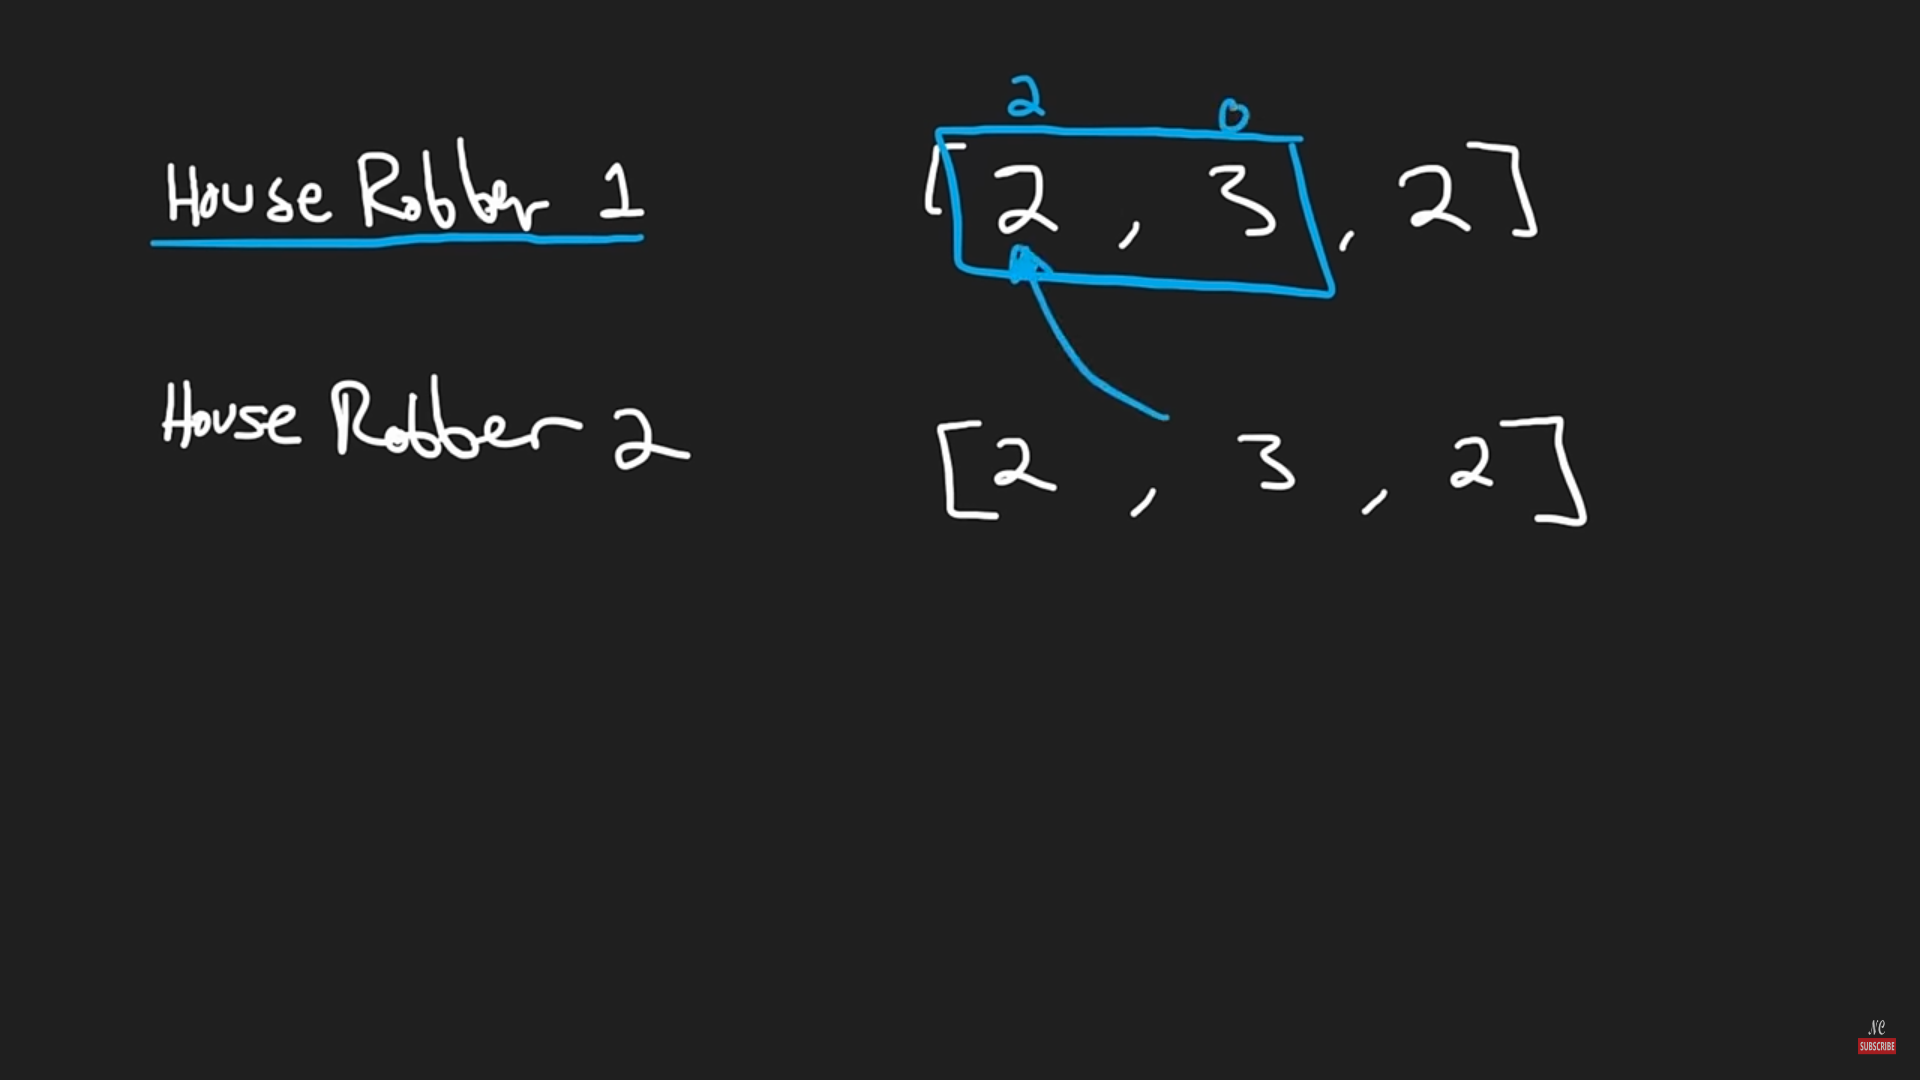 2 0
House Robber 1 [2, 3, 2]
House Robber 2 [2, 3, 2]
NC
SUBSCRIBE